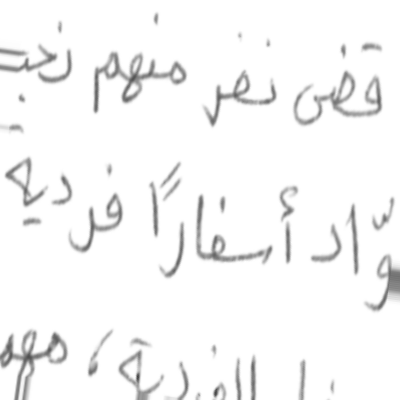 قضى نفر منهم نخبـ
وّاد أسفارًا فردية
الفردية، مهم